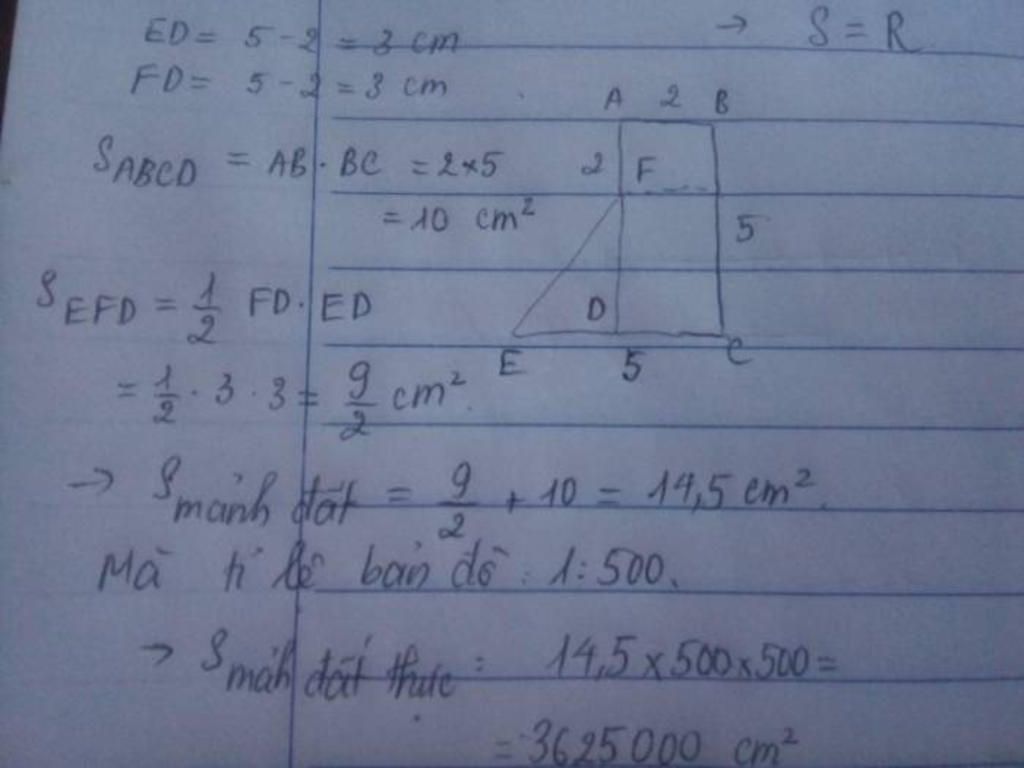 ED = 5 - 2 = 3 cm
→ S = R
FD = 5 - 2 = 3 cm
A 2 B
S ABCD = AB . BC = 2×5
2 F
= 10 cm²
5
S EFD = 1/2 FD . ED
D
E 5 C
= 1/2 . 3 . 3 = 9/2 cm²
→ S mảnh đất = 9/2 + 10 = 14,5 cm².
Mà tỉ lệ bản đồ : 1 : 500.
→ S mảh đất thực : 14,5 × 500 × 500 =
= 3625000 cm²